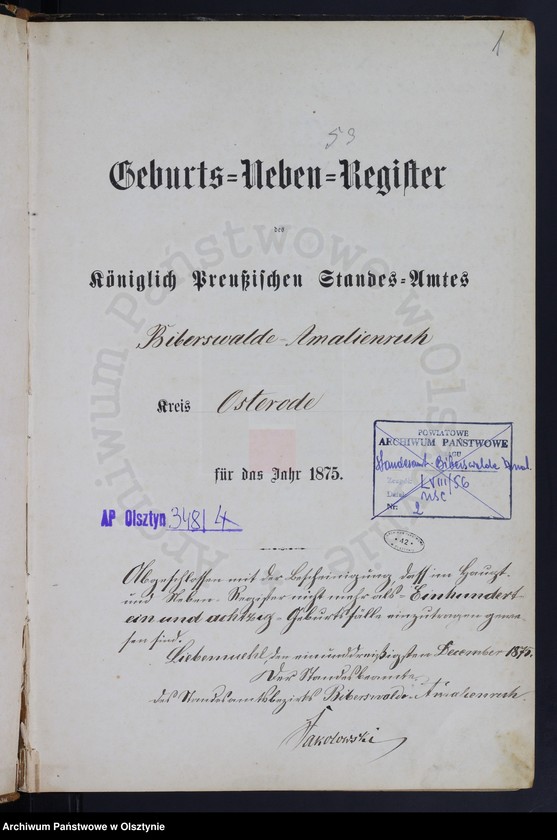 1
53
Geburts=Neben=Register
des
Königlich Preußischen Standes=Amtes
Biberswalde-Amalienruh
Kreis Osterode
für das Jahr 1875.
POWIATOWE
ARCHIWUM PAŃSTWOWE
Standesamt-Biberswalde Amal.
LVIII/56
USC
Nr: 2
AP Olsztyn 348/4
Abgeschlossen mit der Bescheinigung, dass im Haupt-
und Neben-Register nicht mehr als -Einhundert-
ein und achtzig- Geburtsfälle einzutragen gewe-
sen sind.
Liebemuehl den einunddreißigsten December 1875.
Der Standesbeamte
des Standesamtsbezirks Biberswalde-Amalienruh
Archiwum Państwowe w Olsztynie
Archiwum Państwowe w Olsztynie